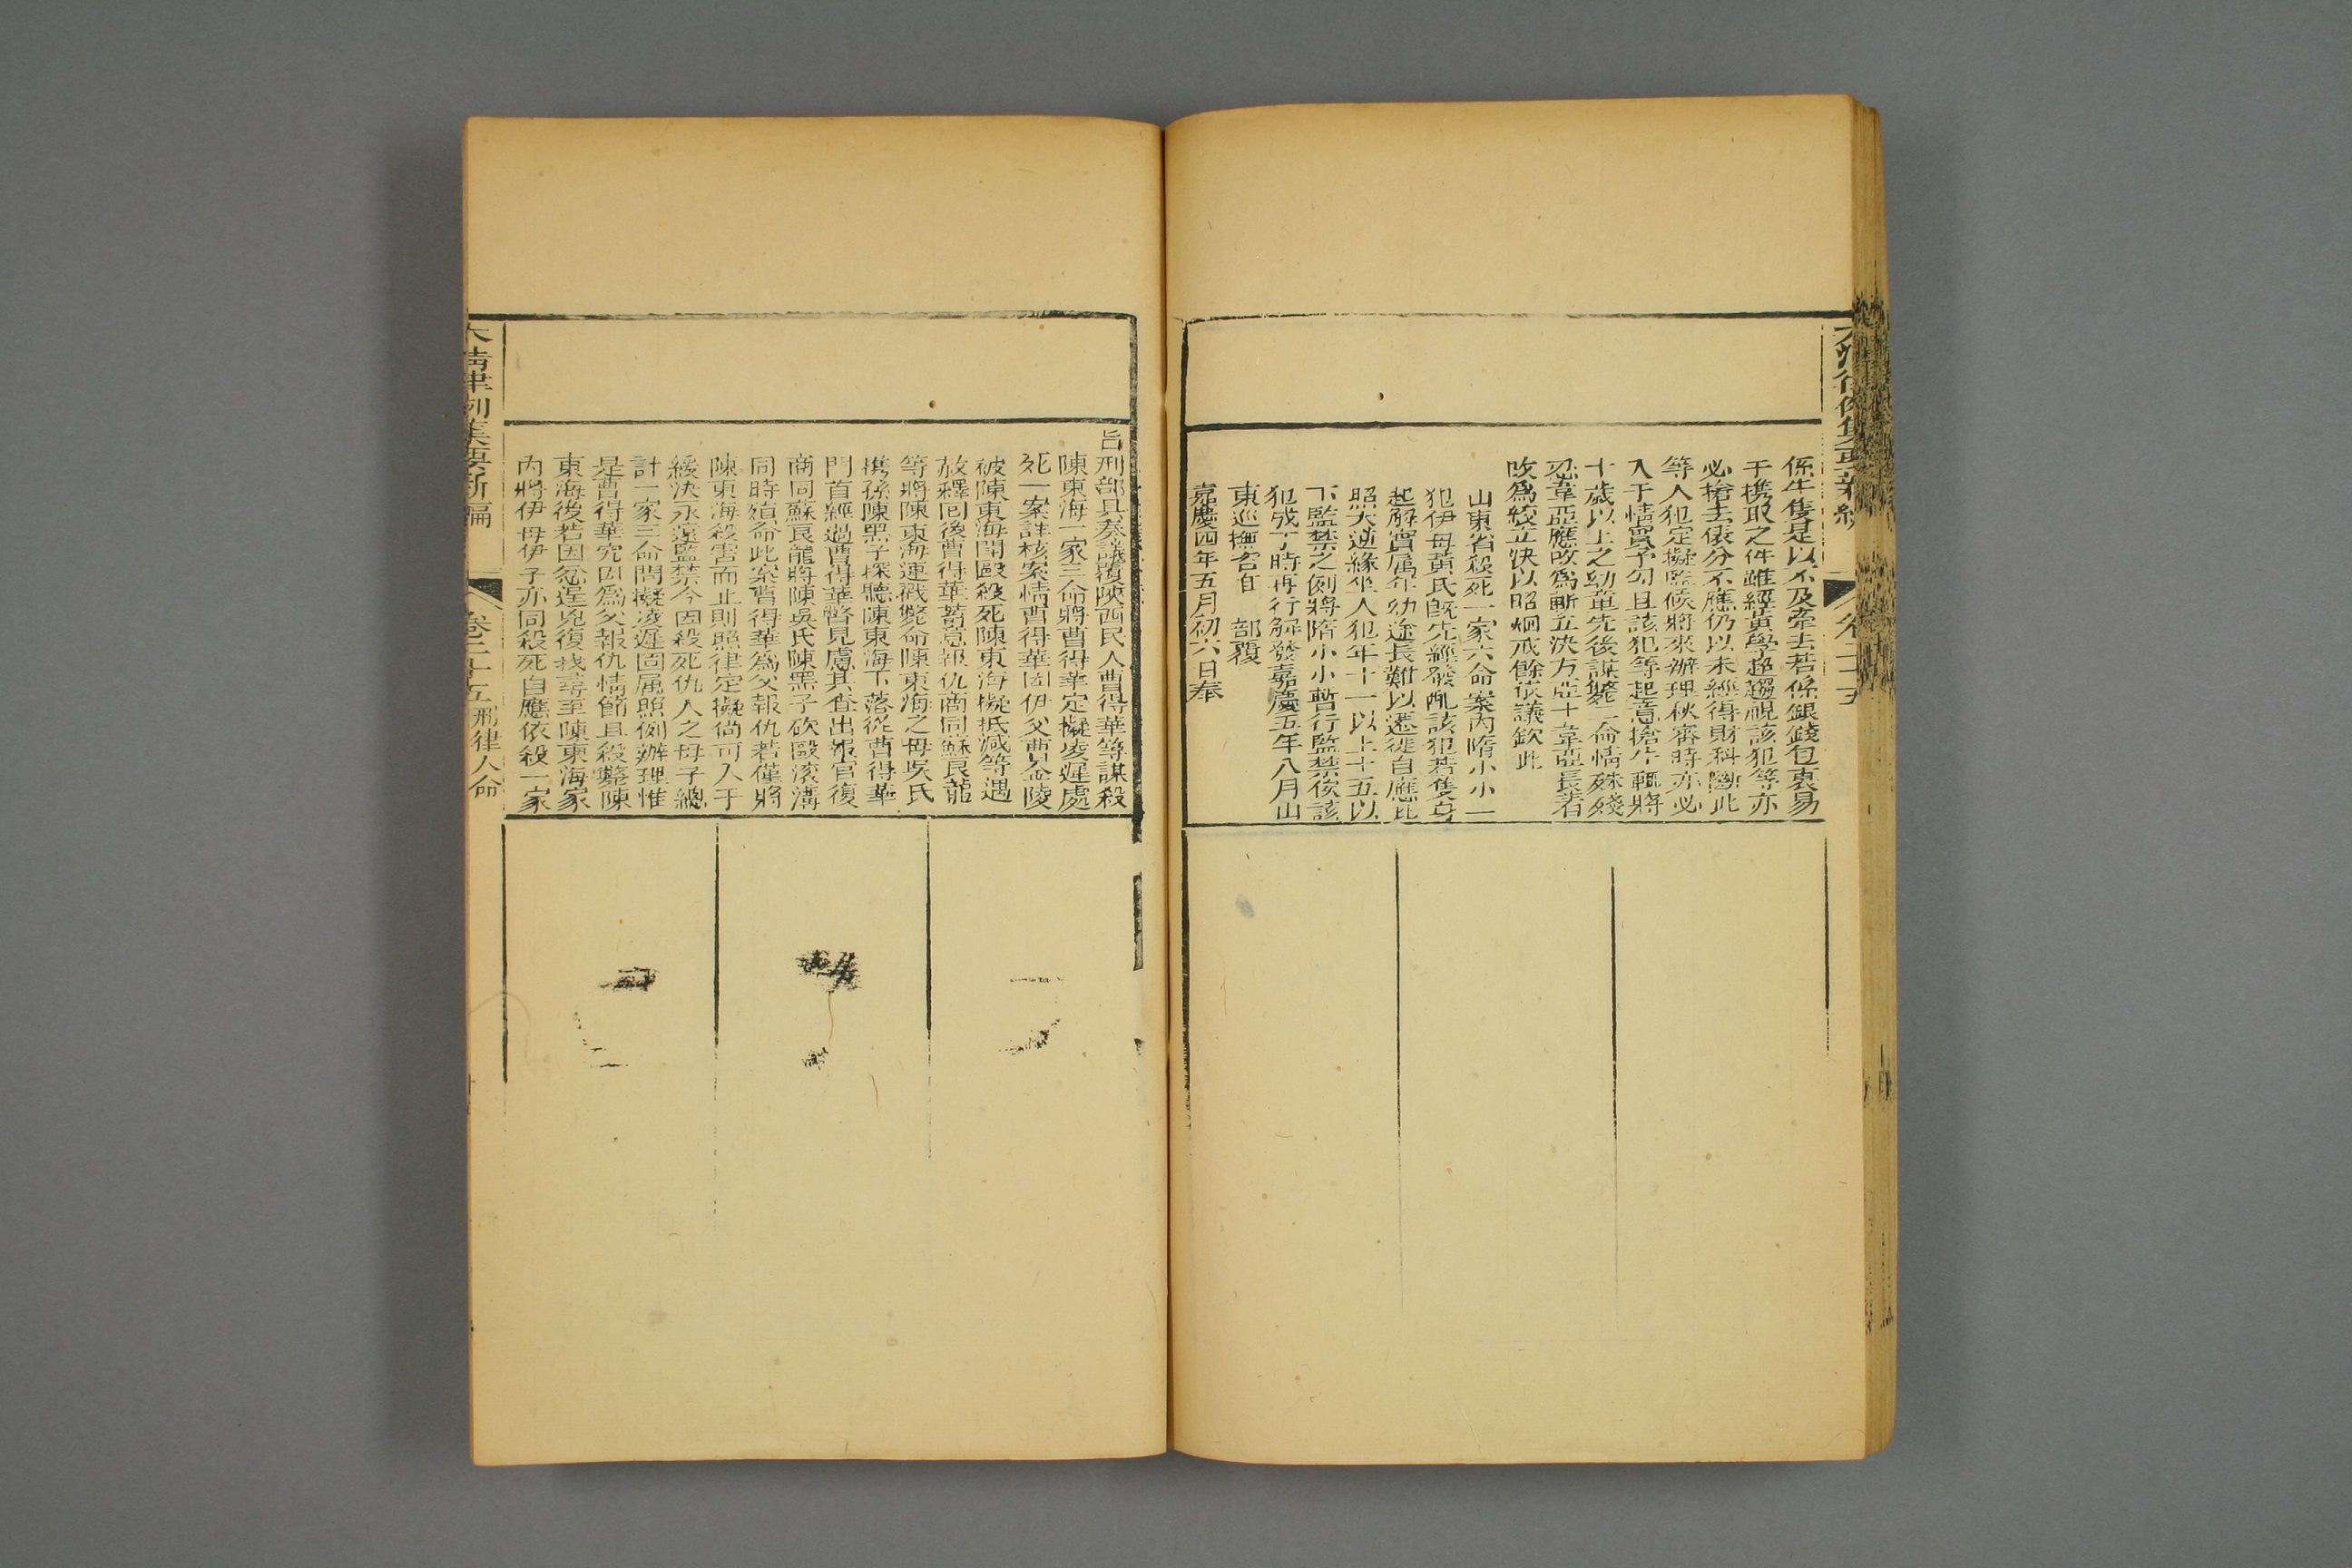 係牛隻是以不及牽去若係銀錢包裹易
于携取之件雖經黃學趕趨視該犯等亦
必搶去俵分不應仍以未經得財科斷此
等人犯定擬監候將來辦理秋審時亦必
入于情實予勾且該犯等起意搶牛輒將
十歲以上之幼童先後謀斃二命情殊殘
忍韋亞應改爲斬立決方亞十韋亞長著
改爲絞立決以昭炯戒餘依議欽此
山東省殺死一家六命案內隋小小一
犯伊母黃氏旣先經發配該犯若隻身
起解實属年幼途長難以遷徙自應比
照大逆緣坐人犯年十一以上十五以
下監禁之例將隋小小暫行監禁俟該
犯成丁時再行解發嘉慶五年八月山
東巡撫咨自 部覆
嘉慶四年五月初六日奉
旨刑部具奏議覆陝西民人曹得華等謀殺
陳東海一家三命將曹得華定擬凌遲處
死一案詳核案情曹得華因伊父曹金陵
被陳東海鬪毆殺死陳東海擬抵減等遇
赦釋囘後曹得華蓄意報仇商同蘇良龍
等將陳東海連戳斃命陳東海之母吳氏
携孫陳黑子探聽陳東海下落從曹得華
門首經過曹得華瞥見慮其查出報官復
商同蘇良龍將陳吳氏陳黑子砍毆滚溝
同時殞命此案曹得華爲父報仇若僅將
陳東海殺害而止則照律定擬尚可入于
緩決永遠監禁今因殺死仇人之母子總
計一家三命問擬凌遲固属照例辦理惟
是曹得華究因爲父報仇情節且殺斃陳
東海後若因忿逞兇復找尋至陳東海家
內將伊母伊子亦同殺死自應依殺一家
大淸律例集要新編 卷二十五 刑律人命